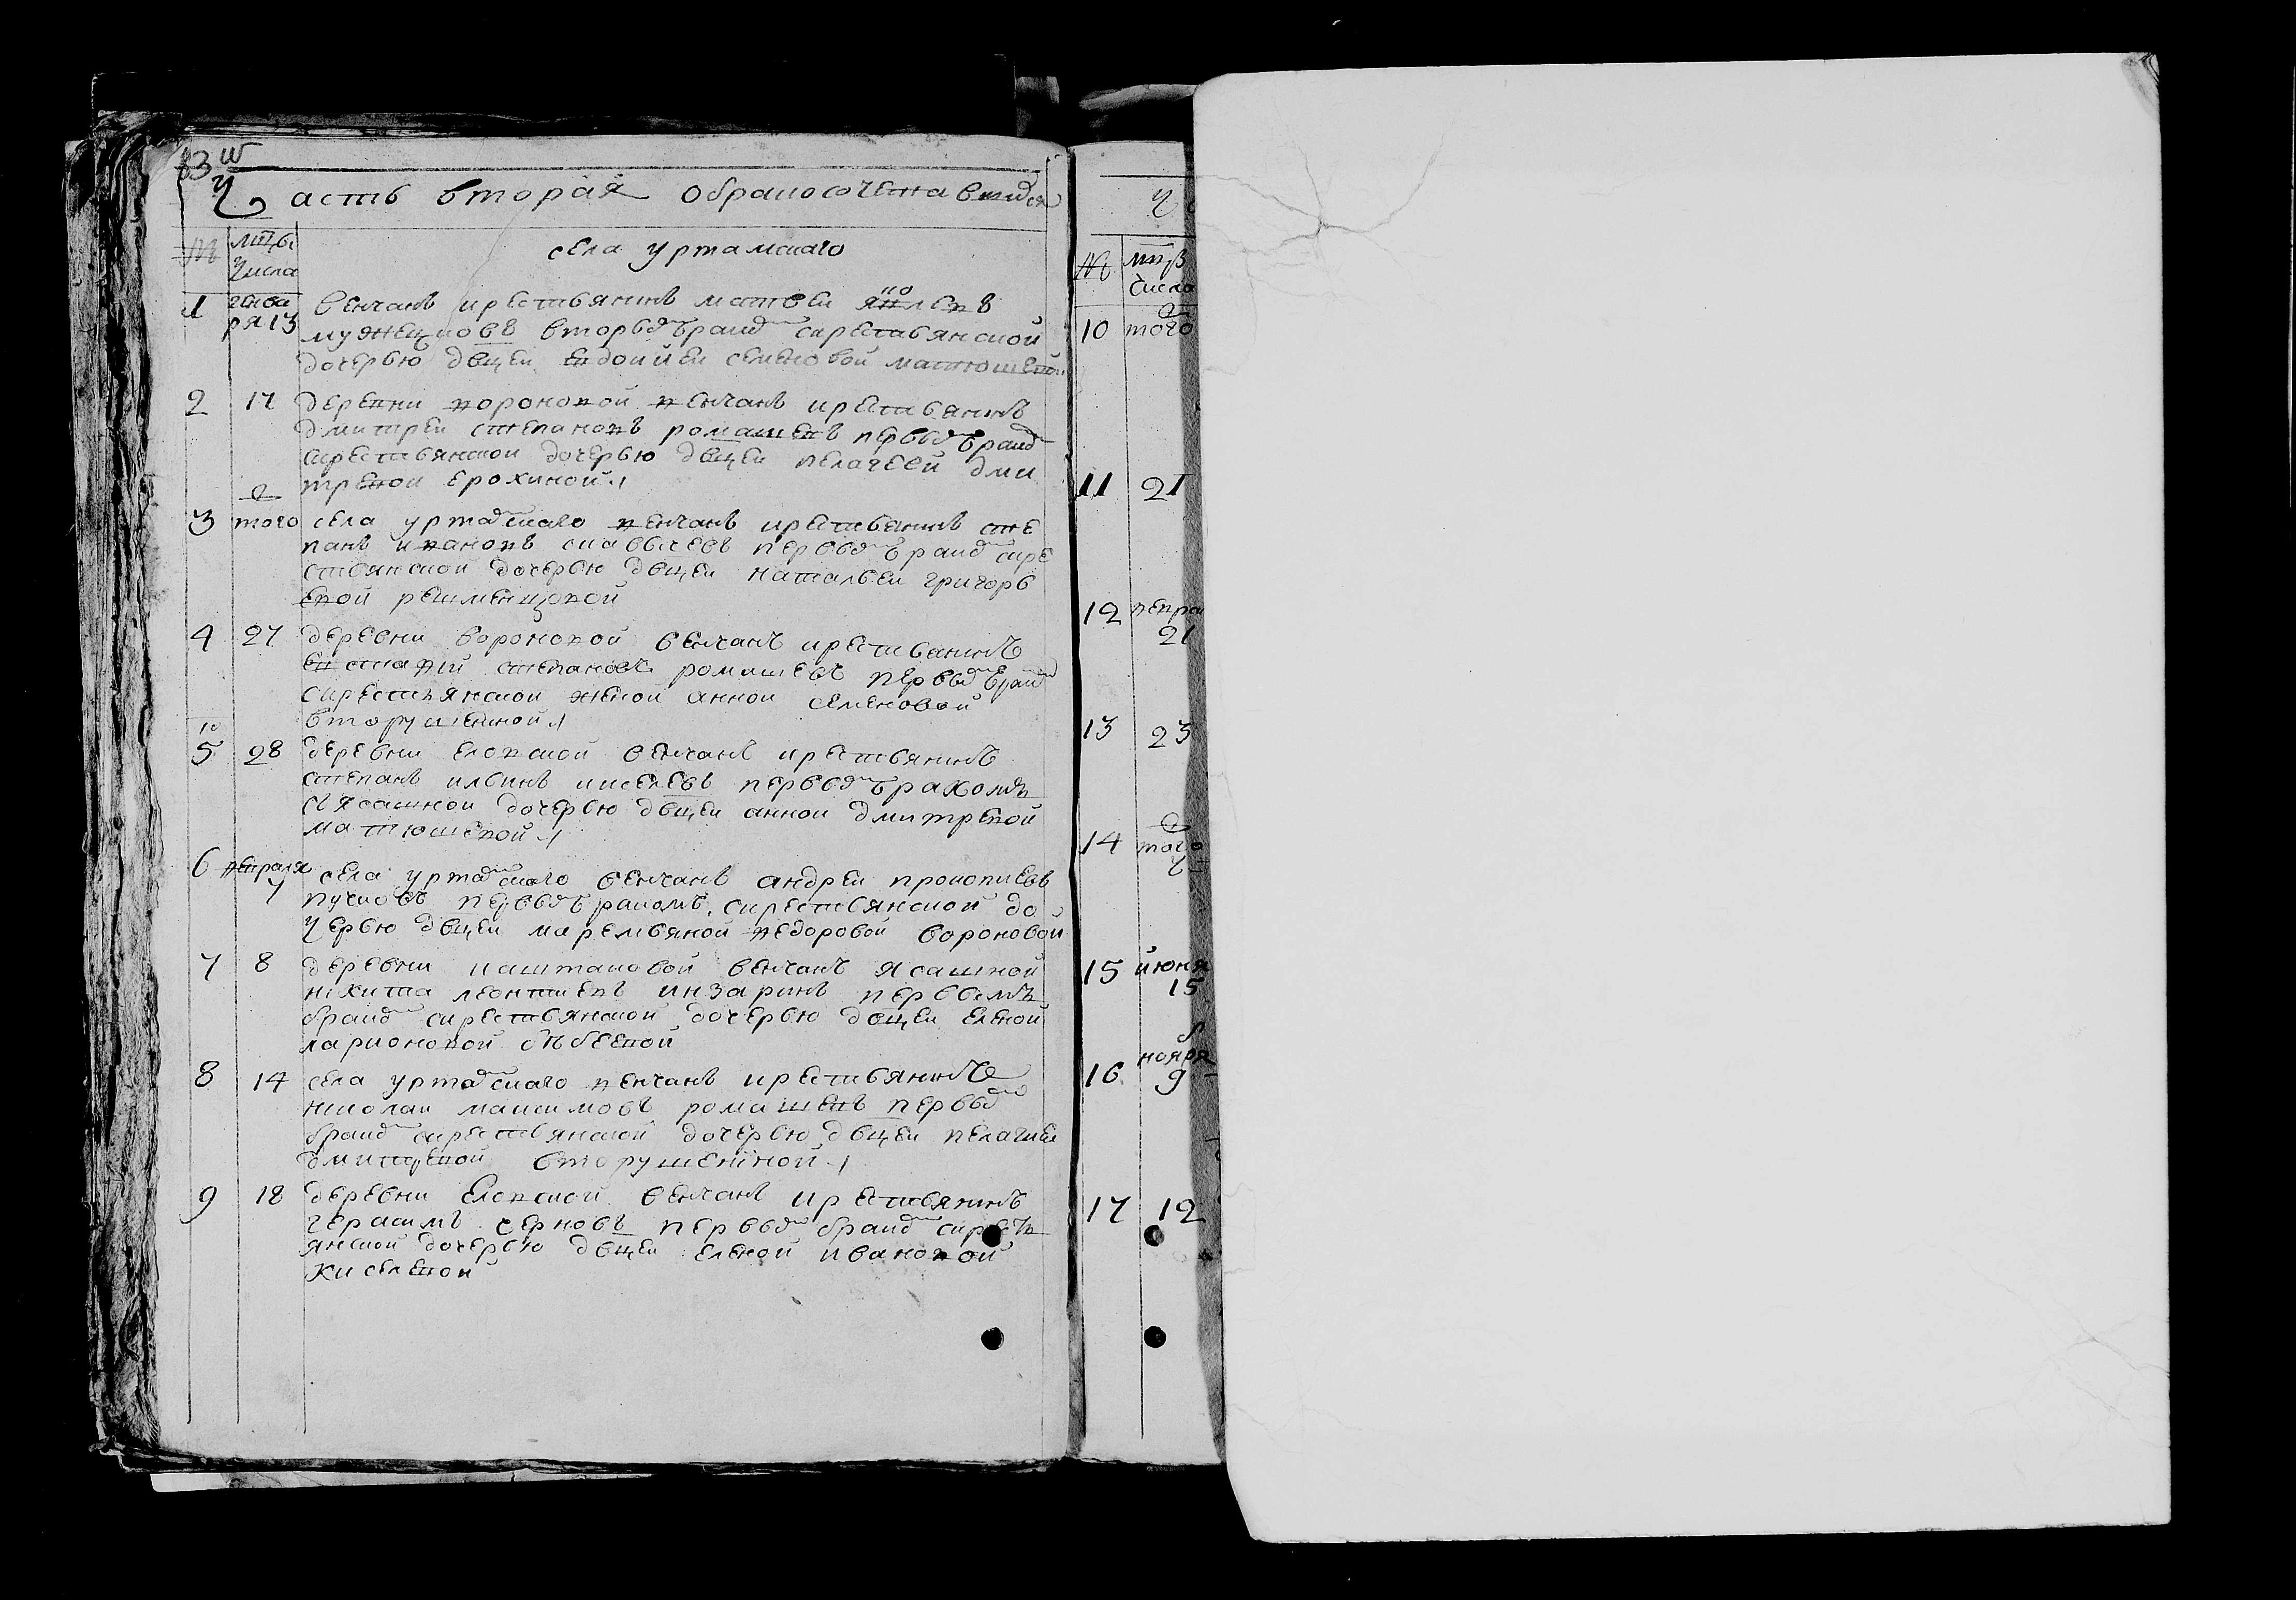 Часть вторая обраносочетавшихся
№ мцы числа
села уртамскаго
1 генваря 13 венчанъ крестьянинъ матвеи яковлевъ
мужецковъ вторымъ бракомъ скрестьянской
дочерью двцеи евдокиеи семеновой матюшевой
2 17 деревни вороновой венчанъ крестьянинъ
дмитреи степановъ ромашевъ первымъ бракомъ
скрестьянской дочерью двцеи пелагеей дми
тревой ерохиной
3 того села уртамскаго венчанъ крестьянинъ сте
панъ ивановъ первымъ бракомъ скре
стьянской дочерью двцеи натальеи григорь
евой
4 27 деревни вороновой венчанъ крестьянинъ
евстафий степановъ ромашевъ первымъ бракомъ
скрестьянской женой анной семеновой
вторушенной
5 28 деревни еловской венчанъ крестьянинъ
степанъ ильинъ киселевъ первымъ бракомъ
съясашной дочерью двцеи анной дмитревой
матюшевой
6 февраля 7 села уртамскаго венчанъ андреи прокопиевъ
пучковъ первымъ бракомъ скрестьянской до
черью двцеи маремьяной федоровой вороновой
7 8 деревни каштаковой венчанъ ясашной
никита леонтиевъ инзаринъ первымъ
бракомъ скрестьянской дочерью двцеи еленой
ларионовой
8 14 села уртамскаго венчанъ крестьянинъ
николаи максимовъ ромашевъ первымъ
бракомъ скрестьянской дочерью двцеи пелагиеи
дмитревой вторушенной
9 18 деревни еловской венчанъ крестьянинъ
герасимъ черновъ первымъ бракомъ скресть
янской дочерью двцеи еленой ивановой
киселевой
№ числа
10 того
11 21
12 21
13 23
14 того
15 июня 15
16 ноября 9
17 12